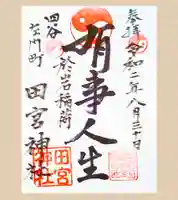 奉拝 令和二年八月三十日
有事人生
於岩稲荷
田宮神社
四谷
左門町
田宮
神社